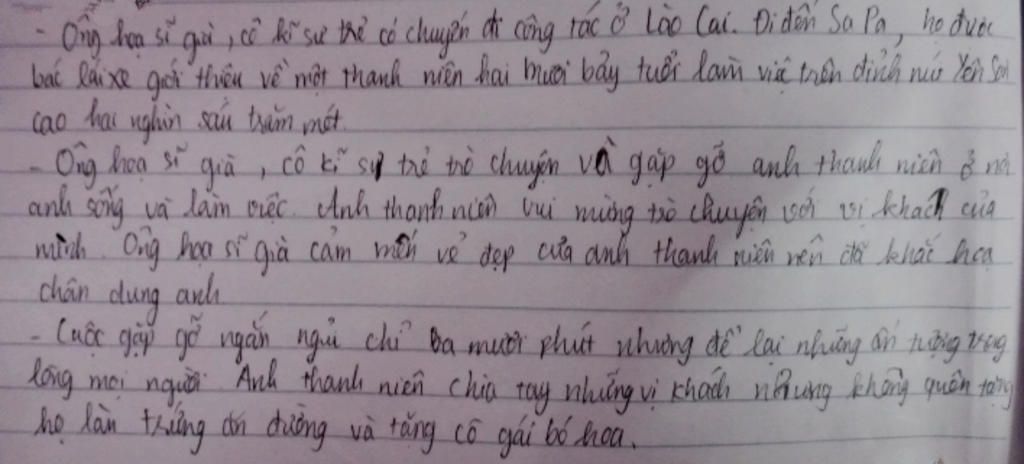 - Ông hoạ sĩ già, cô kĩ sư trẻ có chuyến đi công tác ở Lào Cai. Đi đến Sa Pa, họ được
bác lái xe giới thiệu về một thanh niên hai mươi bảy tuổi làm việc trên đỉnh núi Yên Sơn
cao hai nghìn sáu trăm mét.
- Ông hoạ sĩ già, cô kĩ sư trẻ trò chuyện và gặp gỡ anh thanh niên ở nơi
anh sống và làm việc. Anh thanh niên vui mừng trò chuyện với vị khách của
mình. Ông hoạ sĩ già cảm mến vẻ đẹp của anh thanh niên nên đã khắc hoạ
chân dung anh
- Cuộc gặp gỡ ngắn ngủi chỉ ba mươi phút nhưng để lại những ấn tượng trong
lòng mọi người. Anh thanh niên chia tay những vị khách nhưng không quên tặng
họ làn trứng ăn đường và tặng cô gái bó hoa.